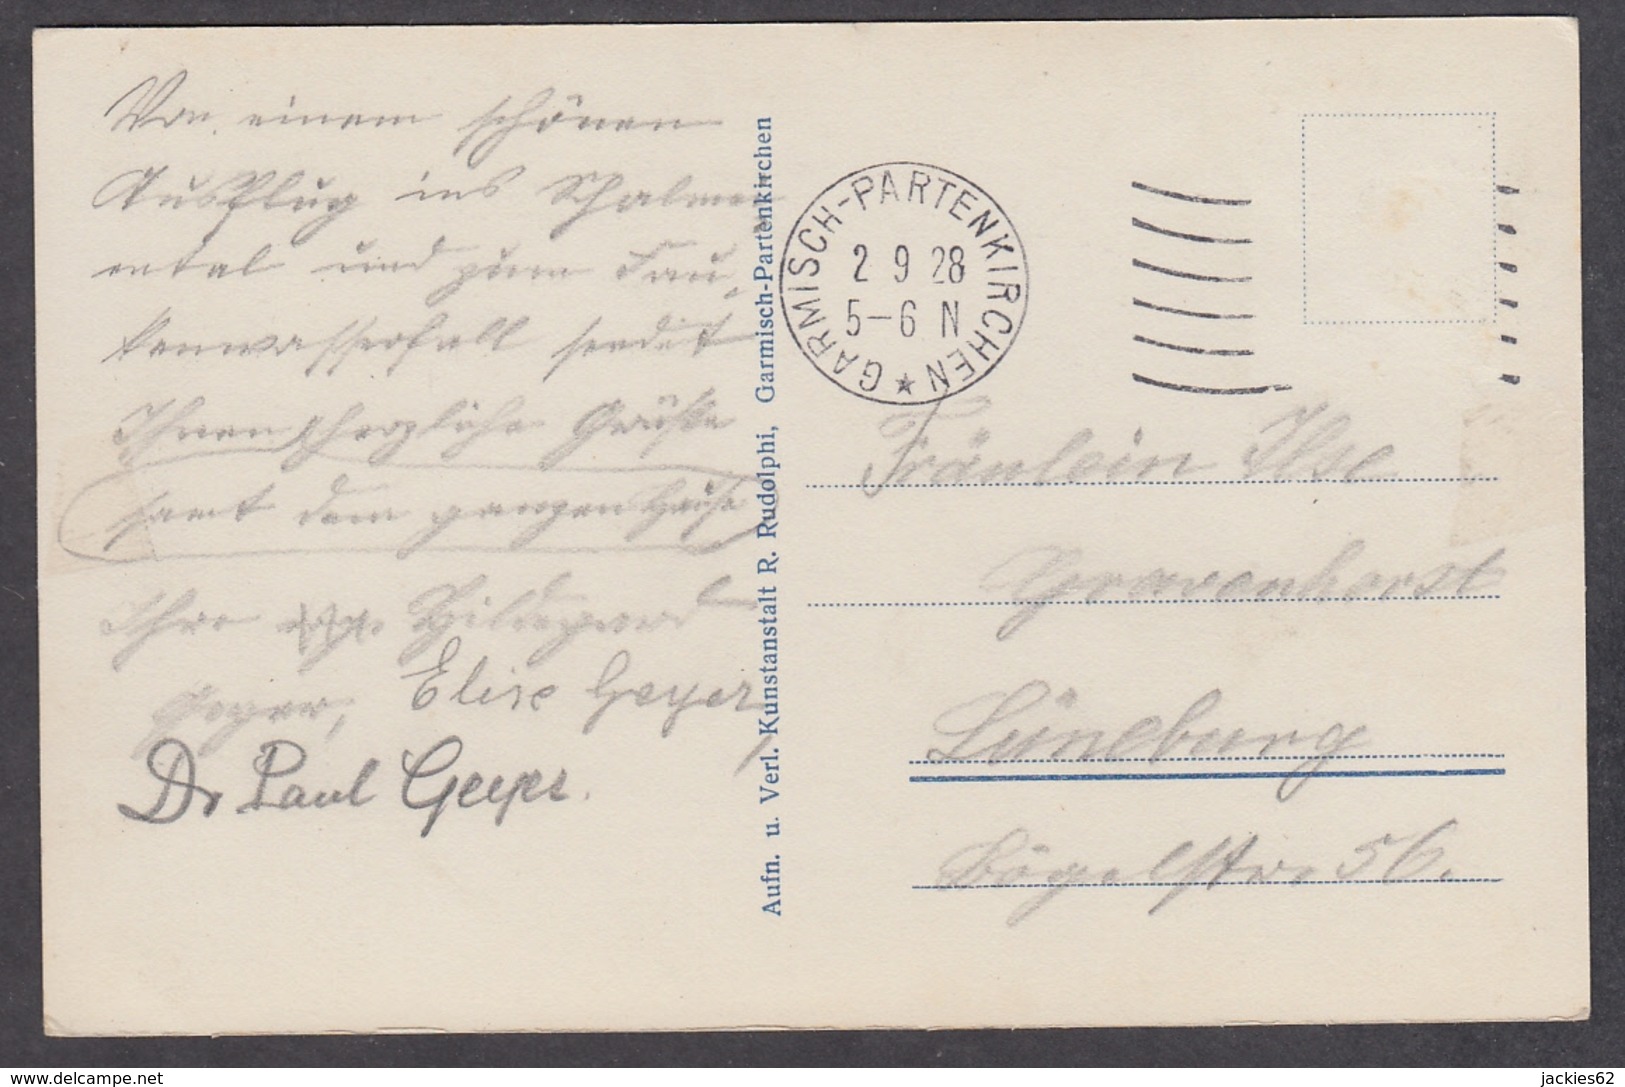 Von einem schönen
Ausflug ins Schalmei
ental und zum Fau-
kenwasserfall sendet
Ihnen herzliche Grüße
samt dem ganzen Hause
Ihre Hildegard
Geyer, Elise Geyer,
Dr Paul Geyer.
Aufn. u. Verl. Kunstanstalt R. Rudolphi, Garmisch-Partenkirchen
GARMISCH-PARTENKIRCHEN
2 9 28
5-6 N
GARMISCH-PARTENKIRCHEN
Fräulein Ilse
Gravenhorst
Lüneburg
Bögelstr. 56.
delcampe.net
jackies62